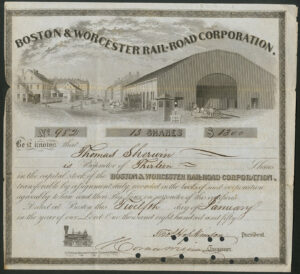 BOSTON & WORCESTER RAIL-ROAD CORPORATION.
No. 982 13 SHARES $ 1300
Be it known, that
Thomas Sherwin
is Proprietor of Thirteen Shares
in the capital stock of the BOSTON & WORCESTER RAIL-ROAD CORPORATION,
transferable by assignment duly recorded in the books of said corporation
Dated at Boston this Twelfth day of January
in the year of our Lord One thousand eight hundred and fifty
President.
Treasurer.